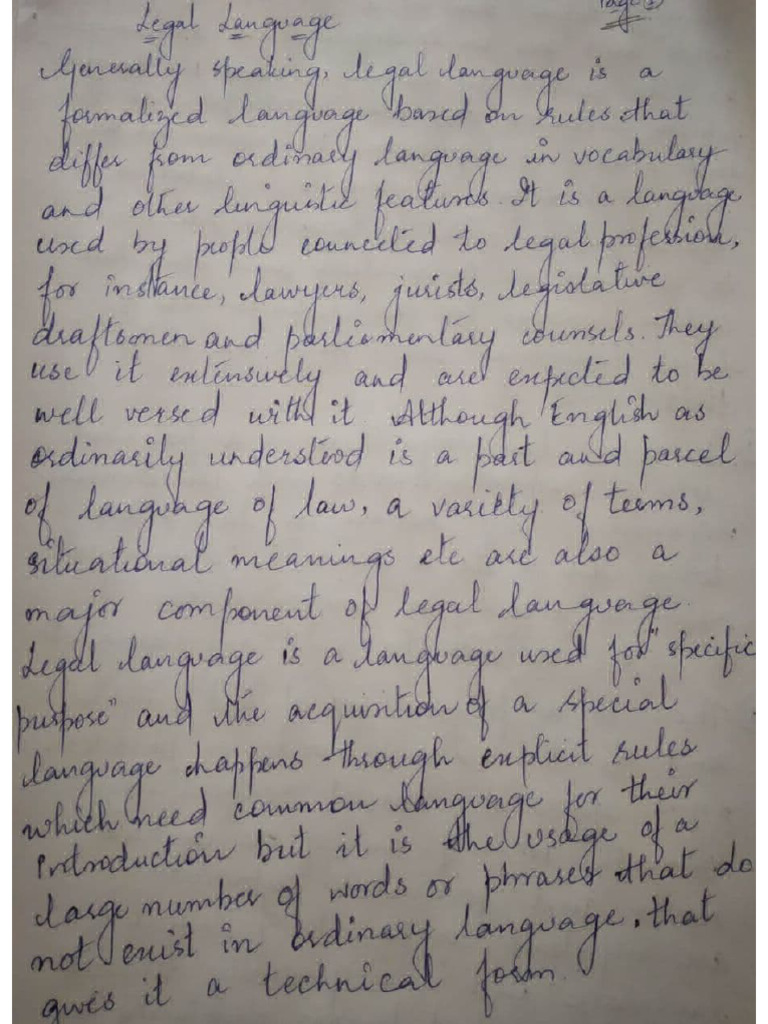 Legal Language
Page 1
Generally speaking, legal language is a
formalized language based on rules that
differ from ordinary language in vocabulary
and other linguistic features. It is a language
used by people connected to legal profession,
for instance, lawyers, jurists, legislative
draftsmen and parliamentary counsels. They
use it extensively and are expected to be
well versed with it. Although English as
ordinarily understood is a part and parcel
of language of law, a variety of terms,
situational meanings etc are also a
major component of legal language.
Legal language is a language used for "specific
purpose" and the acquisition of a special
language happens through explicit rules
which need common language for their
introduction but it is the usage of a
large number of words or phrases that do
not exist in ordinary language, that
gives it a technical form.